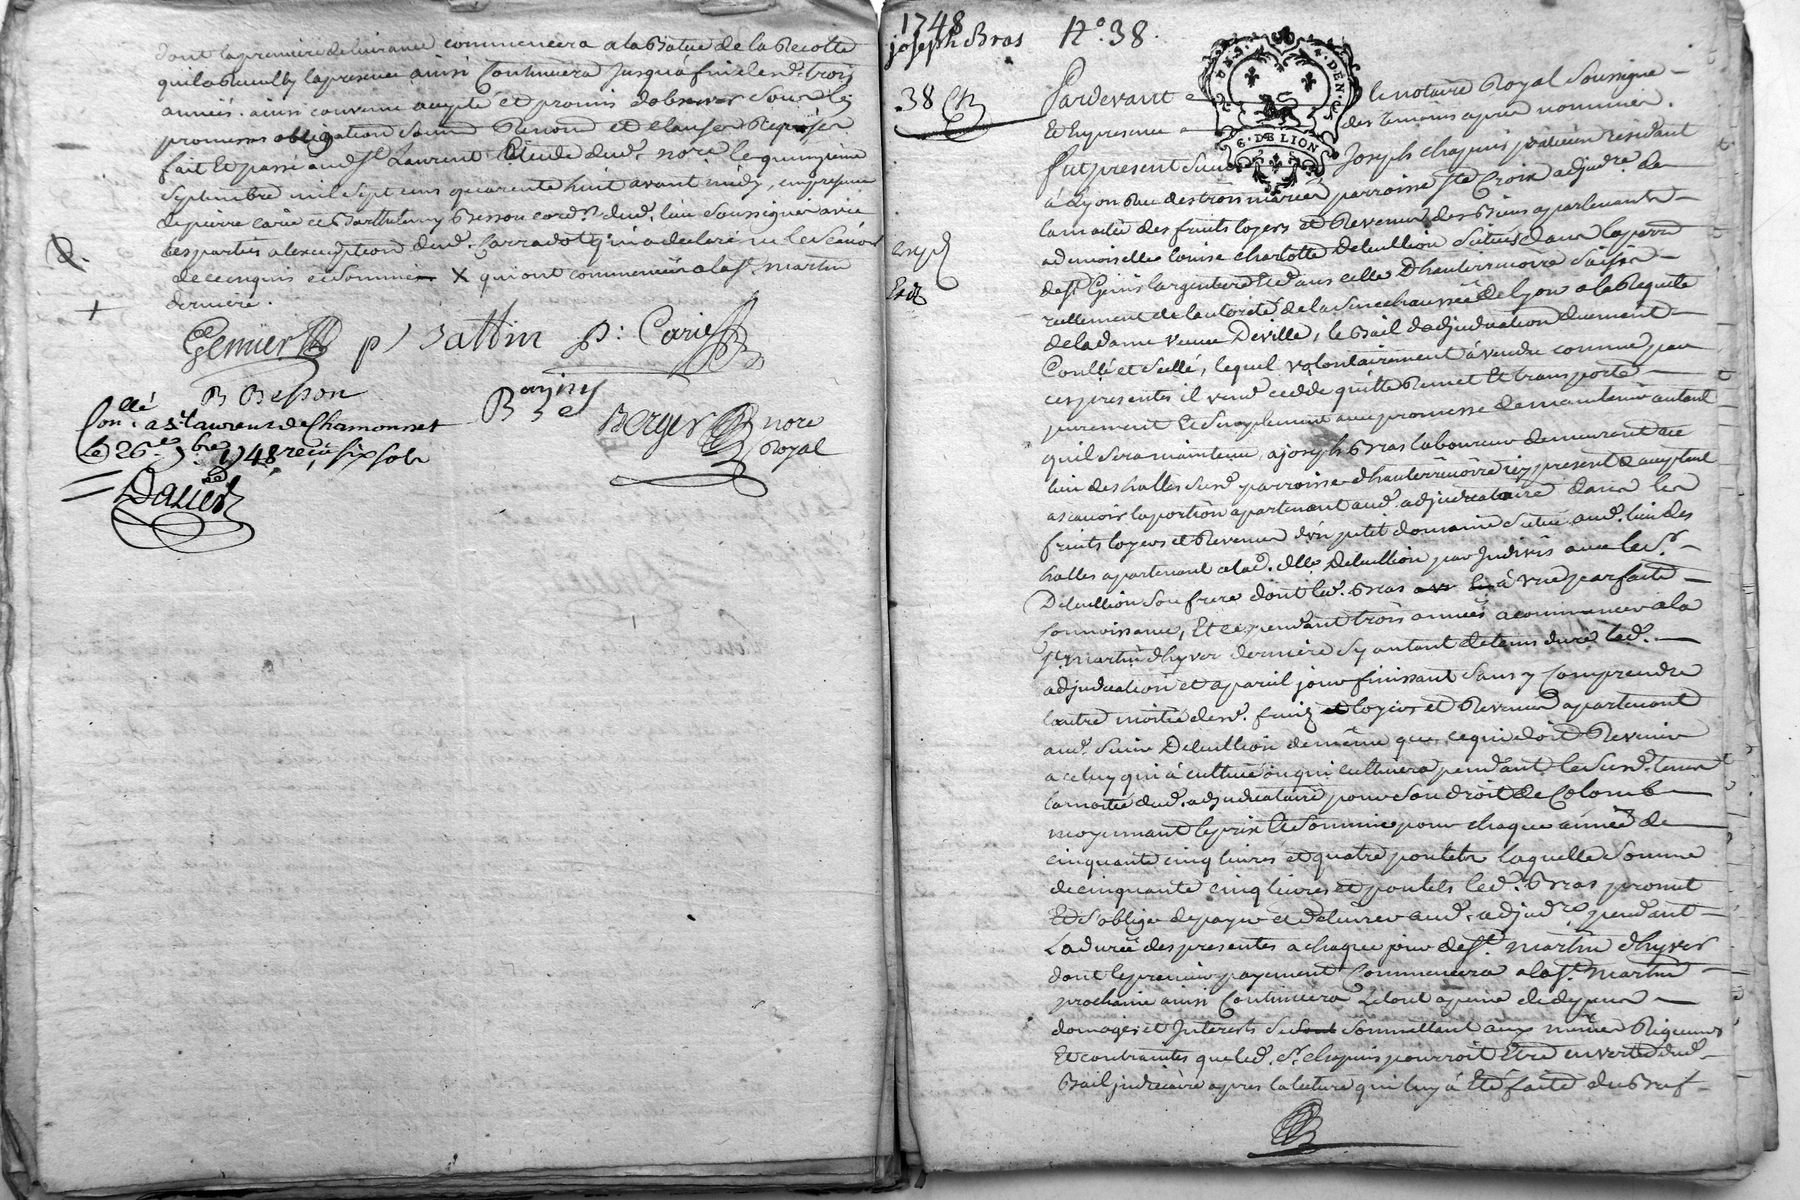 dont la premiere delivrance commencera a la Batue de la Recolte
qui la Recueilly la presente ainsi Continuera jusqu'a fin desd. trois
années. ainsi convenu accepté et promis dobserver sous les
promesses obligation soum Renond et clauses Requises
fait Et passé aud St Laurent Etude dud. nore le quinzieme
Septembre mil sept cens quarente huit avant midy, en presence
de pierre Carie et Barthelemy Besson cord.r dud. lieu soussignés avec
les parties a lexception dud. qui a declaré ne le scavoir
de ce enquis et sommé X qui ont commencé a la St. martin
derniere.
Gemier p) Battin p: Carie
B Besson
Bazin
Berger nore
Royal
Conllé a St Laurent de Chamousset
Le 26e 7bre 1748 reçu six sols
1748
joseph Bras N.o 38.
38
G. DE LION
Pardevant le notaire Royal Soussigné
Et En presence des temoins apres nommés.
fut present Sieur Joseph Chapuis praticien residant
à Lyon Rue des trois maries parroisse Ste Croix adjudre. de
la moitié des fruits loyers et Revenus des Biens apartenants
a demoiselle louise charlotte Deluillion Situés dans la parr
de St Genis largentiere Et dans celle Dhauterivoire Saisis
reellement de lautorité de la Senechaussée de lyon a la Requete
de la dame veuve Deville, le Bail dadjudication duement
Conllé et Scellé, lequel volontairement à vendu comme par
ces presentes il vend cedde quitte Remet Et transporte
purement Et simplement avec promesse de maintenir autant
quil sera maintenu, a joseph Bras laboureur demeurant au
lieu des halles susd. parroisse dhauterivoire icy present & acceptant
ascavoir la portion apartenant aud. adjudicataire dans les
fruits loyers et Revenus d'un petit domaine Situé aud. lieu des
halles apartenant a lad. dlle Deluillion par Indivis avec le Sr.
Deluillion Son frere dont led. Bras à une parfaite
Connoissance, Et ce pendant trois années a commencer a la
St. martin dhyver derniere
adjudication et a pareil jour finissant Sans y Comprendre
lautre moitié desd. fruits loyers et Revenus apartenant
aud. Sieur Deluillion de même que ce qui doit Revenir
a celuy qui à cultivé ou qui cultivera pendant le susd. tems
la moitié dud. adjudicataire pour Son droit de Colombe
moyennant le prix Et Somme pour chaque année de
cinquante cinq livres et quatre poulets laquelle Somme
de cinquante cinq livres et poulets led. Bras promet
Et S'oblige de payer et delivrer aud. adjudre pendant
La durée des presentes a chaque jour de St. martin dhyver
dont le premier payement Commencera a la St. martin
prochaine ainsi Continuera Le tout a peine de depens
domages et Interets se sommettant aux mêmes Rigueurs
Et contraintes que led. Sr. chapuis pourroit Etre en vertu dud.
Bail judiciaire apres la lecture qui luy à Eté faite du Bref